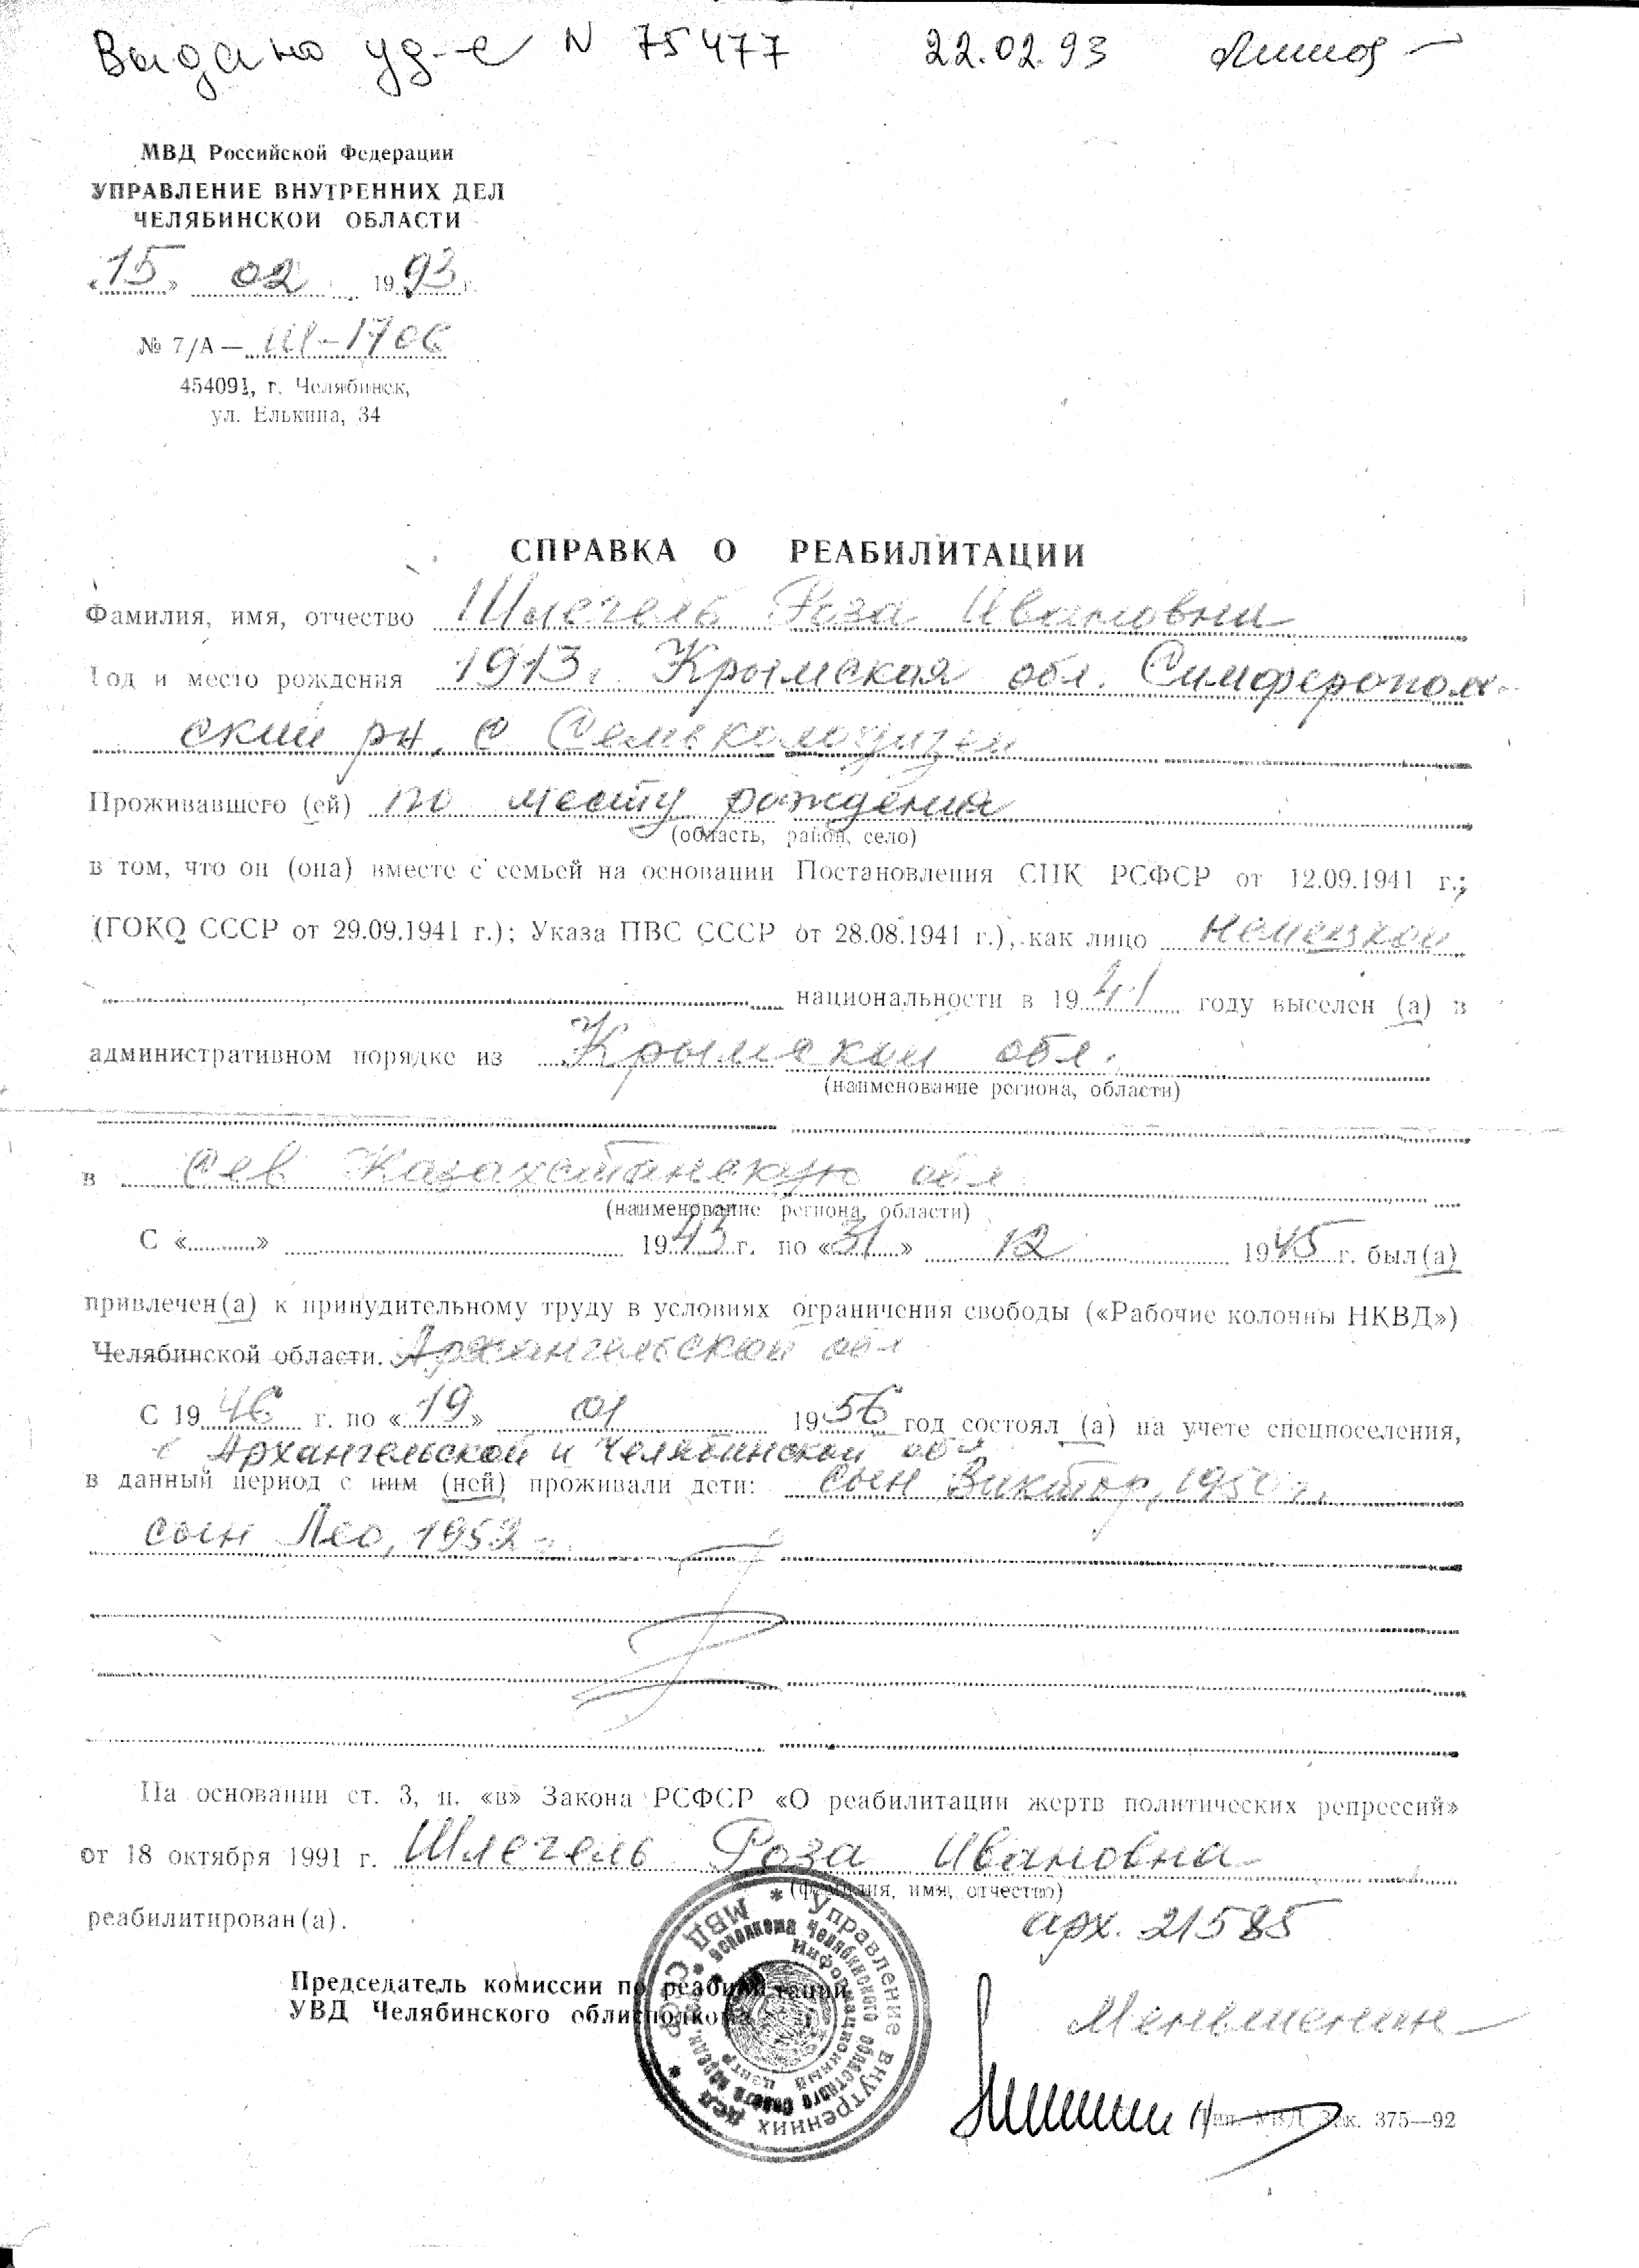 Выдано уд-е N 75477 22.02.93
МВД Российской Федерации
УПРАВЛЕНИЕ ВНУТРЕННИХ ДЕЛ
ЧЕЛЯБИНСКОЙ ОБЛАСТИ
«15» 02 1993 г.
№ 7/А — Ш-1706
454091, г. Челябинск,
ул. Елькина, 34
СПРАВКА О РЕАБИЛИТАЦИИ
Фамилия, имя, отчество Шлегель Роза Ивановна
Год и место рождения 1913 г. Крымская обл. Симферополь-
ский рн, с
Проживавшего (ей) по месту рождения
(область, район, село)
в том, что он (она) вместе с семьей на основании Постановления СНК РСФСР от 12.09.1941 г.;
(ГОКО СССР от 29.09.1941 г.); Указа ПВС СССР от 28.08.1941 г.), как лицо немецкой
национальности в 1941 году выселен (а) в
административном порядке из Крымской обл.
(наименование региона, области)
в Сев Казахстанскую обл
(наименование региона, области)
С «» 1943 г. по «31» 12 1945 г. был(а)
привлечен(а) к принудительному труду в условиях ограничения свободы («Рабочие колонны НКВД»)
Челябинской области. Архангельской обл
С 1946 г. по «19» 01 1956 год состоял (а) на учете спецпоселения,
в Архангельской и Челябинской обл
в данный период с ним (ней) проживали дети: сын Виктор, 1950 г.
сын Лео, 1952 г.
На основании ст. 3, п. «в» Закона РСФСР «О реабилитации жертв политических репрессий»
от 18 октября 1991 г. Шлегель Роза Ивановна
(фамилия, имя, отчество)
реабилитирован(а).
арх. 21585
Председатель комиссии по реабилитации
УВД Челябинского облисполкома
Меньшенин
Тип. УВД Зак. 375—92
МВД СССР * Управление внутренних дел *
исполкома Челябинского областного Совета народн. деп.
Информационный центр